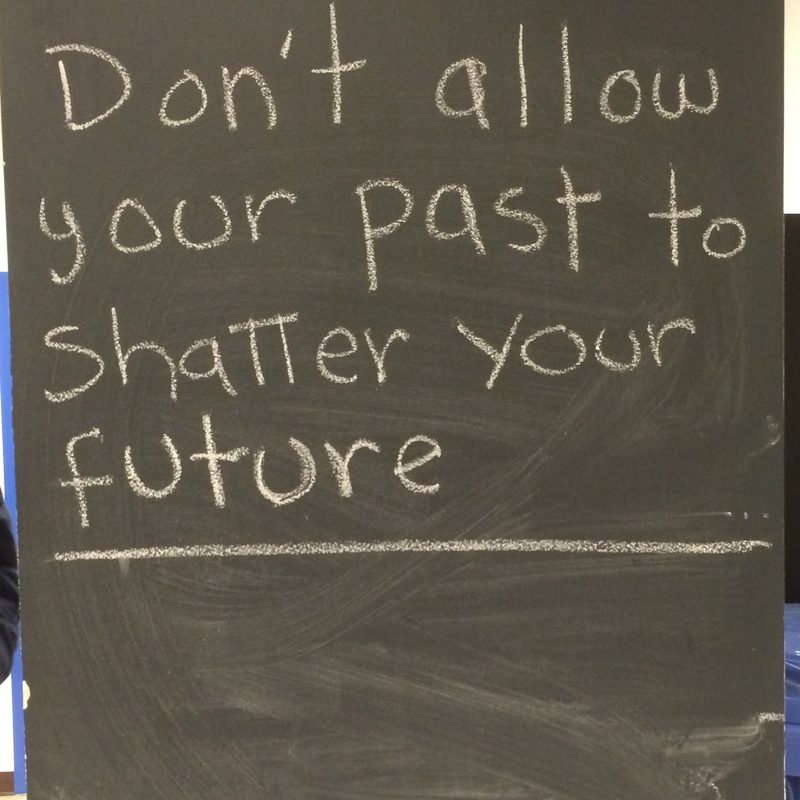 Don't allow
your past to
shatter your
future